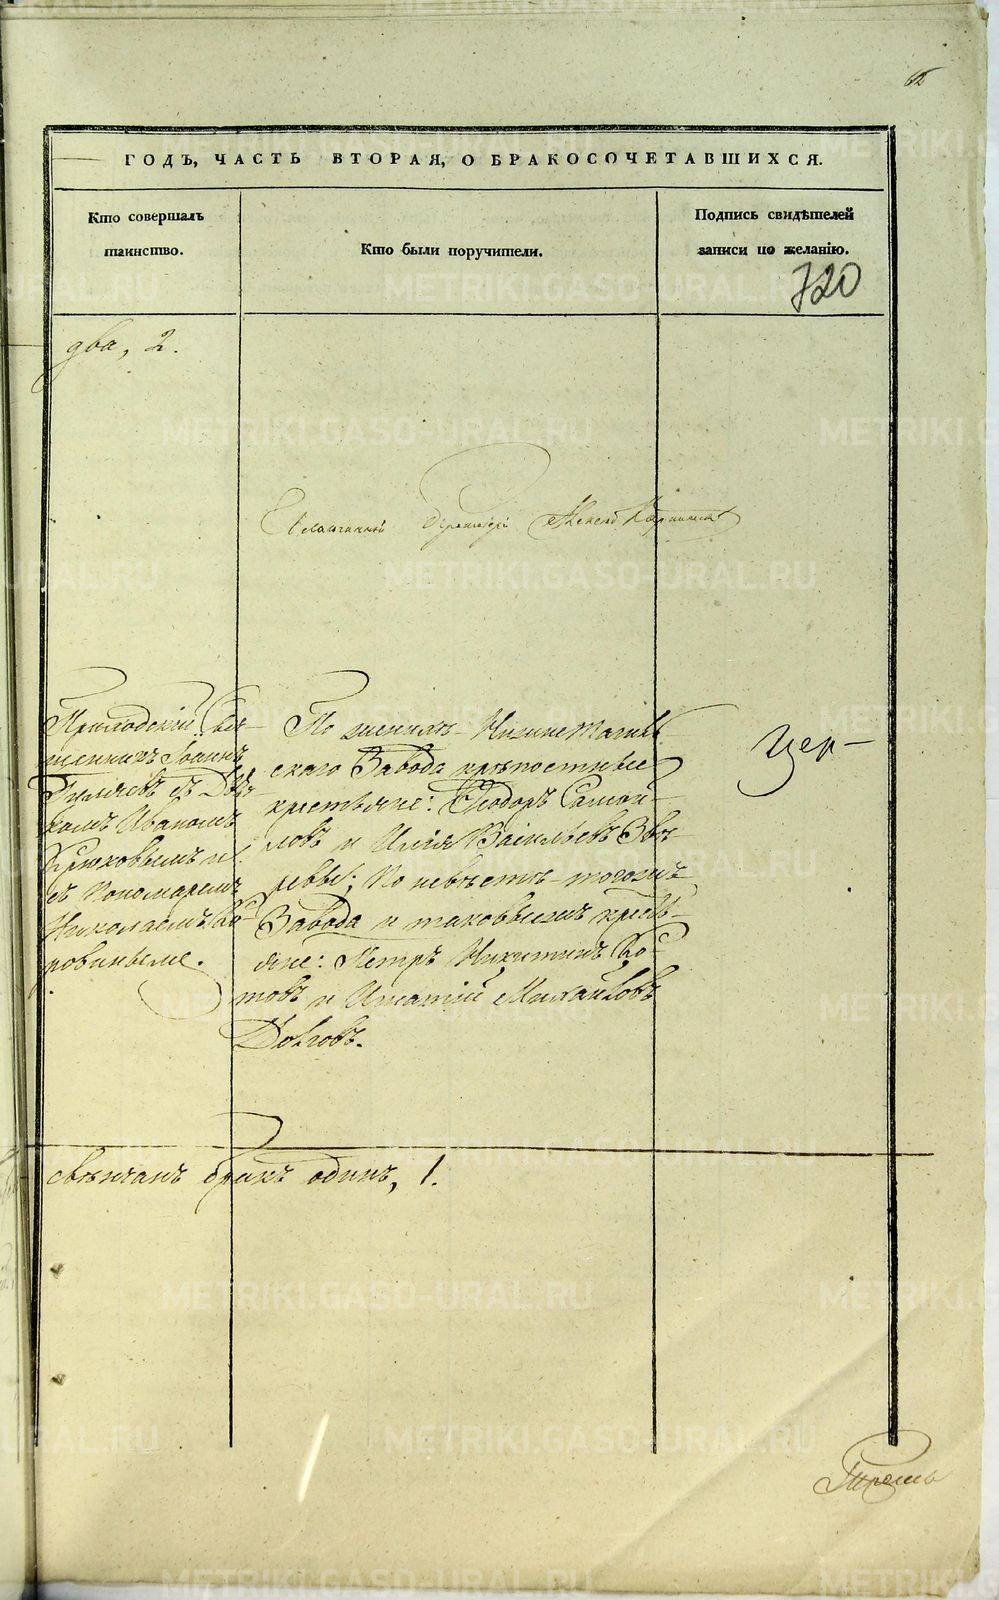 ГОДЪ, ЧАСТЬ ВТОРАЯ, О БРАКОСОЧЕТАВШИХСЯ.
Кто совершалъ
таинство.
Кто были поручители.
Подпись свидѣтелей
записи по желанію.
720
два, 2.
Приходскій Свя-
щенникъ Іоаннъ
съ Дья-
комъ Иваномъ
Крюковымъ и
съ Пономаремъ
Николаемъ Ко-
ровинымъ.
По женихѣ Нижне Тагиль
скаго Завода крѣпостные
крестьяне: Ѳеодоръ Самой-
ловъ и Илія Васильевъ Звѣ
ревы; По невѣстѣ тогожъ
Завода и таковыежъ кресть-
яне: Петръ Никитинъ
товъ и Игнатій Михайловъ
Долговъ.
Цер-
свѣнчанъ бракъ одинъ, 1.
METRIKI.GASO-URAL.RU